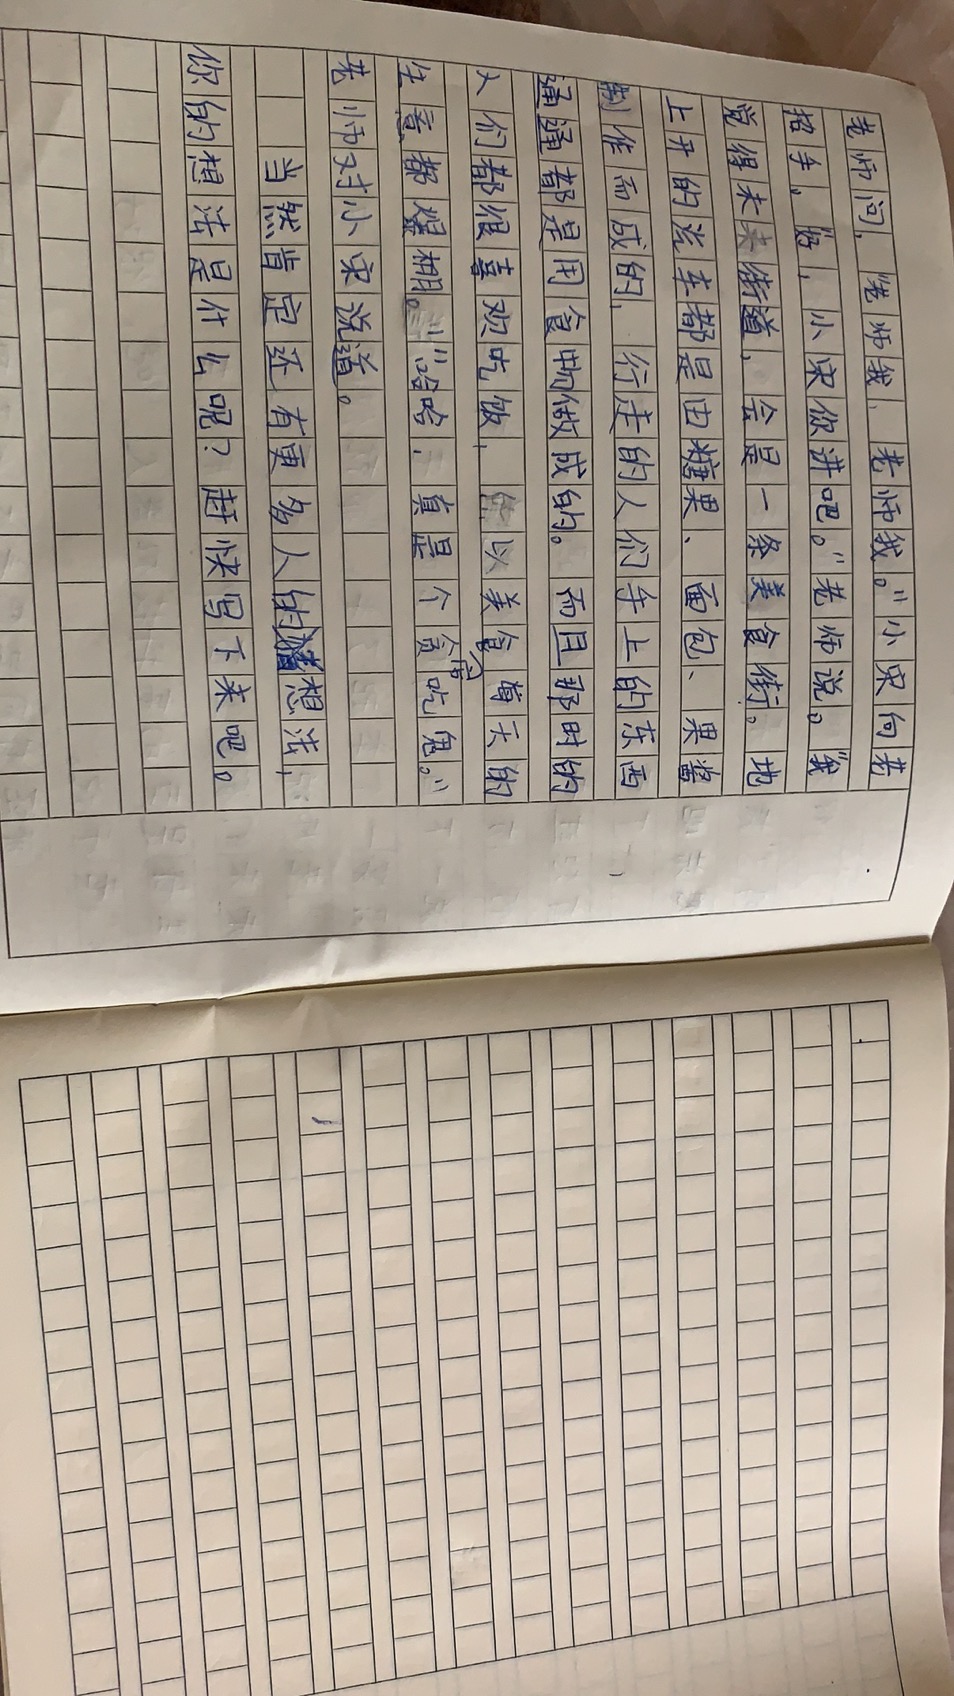 老师问，“老师我、老师我。”小宋向老
招手。“好，小宋你讲吧。”老师说。“我
觉得未来街道，会是一条美食街。地
上开的汽车都是由糖果、面包、果酱
制作而成的，行走的人们手上的东西
通通都是用食物做成的。而且那时的
人们都很喜欢吃饭，以美食每天的
生意都爆棚。”“哈哈，真是个贪吃鬼。”
老师对小宋说道。
当然肯定还有更多人的想法，
你的想法是什么呢？赶快写下来吧。